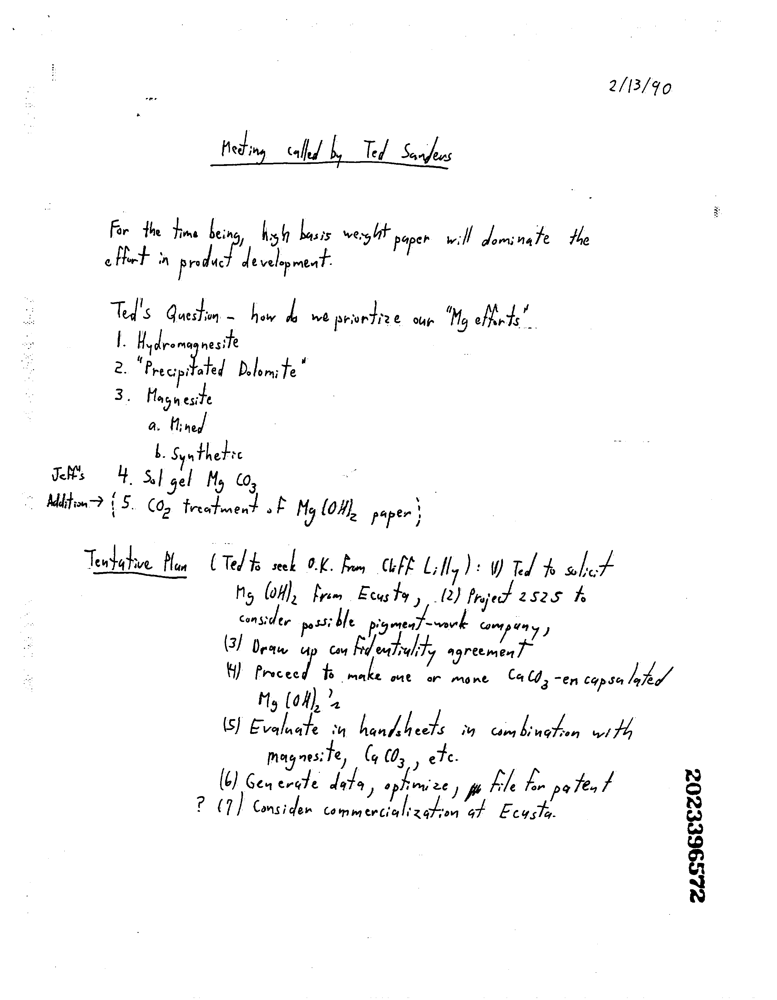 2/13/90
Meeting called by Ted Sanders
For the time being, high basis weight paper will dominate the
effort in product development.
Ted's Question - how do we priortize our "Mg efforts"
1. Hydromagnesite
2. "Precipitated Dolomite"
3. Magnesite
a. Mined
b. Synthetic
Jeff's 4. Sol gel Mg CO3
Addition → { 5. CO2 treatment of Mg(OH)2 paper }
Tentative Plan (Ted to seek O.K. from Cliff Lilly): (1) Ted to solicit
Mg (OH)2 from Ecusta, (2) Project 2525 to
consider possible pigment-work company,
(3) Draw up confidentiality agreement
(4) Proceed to make one or more CaCO3-encapsulated
Mg (OH)2's
(5) Evaluate in handsheets in combination with
magnesite, CaCO3, etc.
(6) Generate data, optimize, file for patent
? (7) Consider commercialization at Ecusta.
2023396572